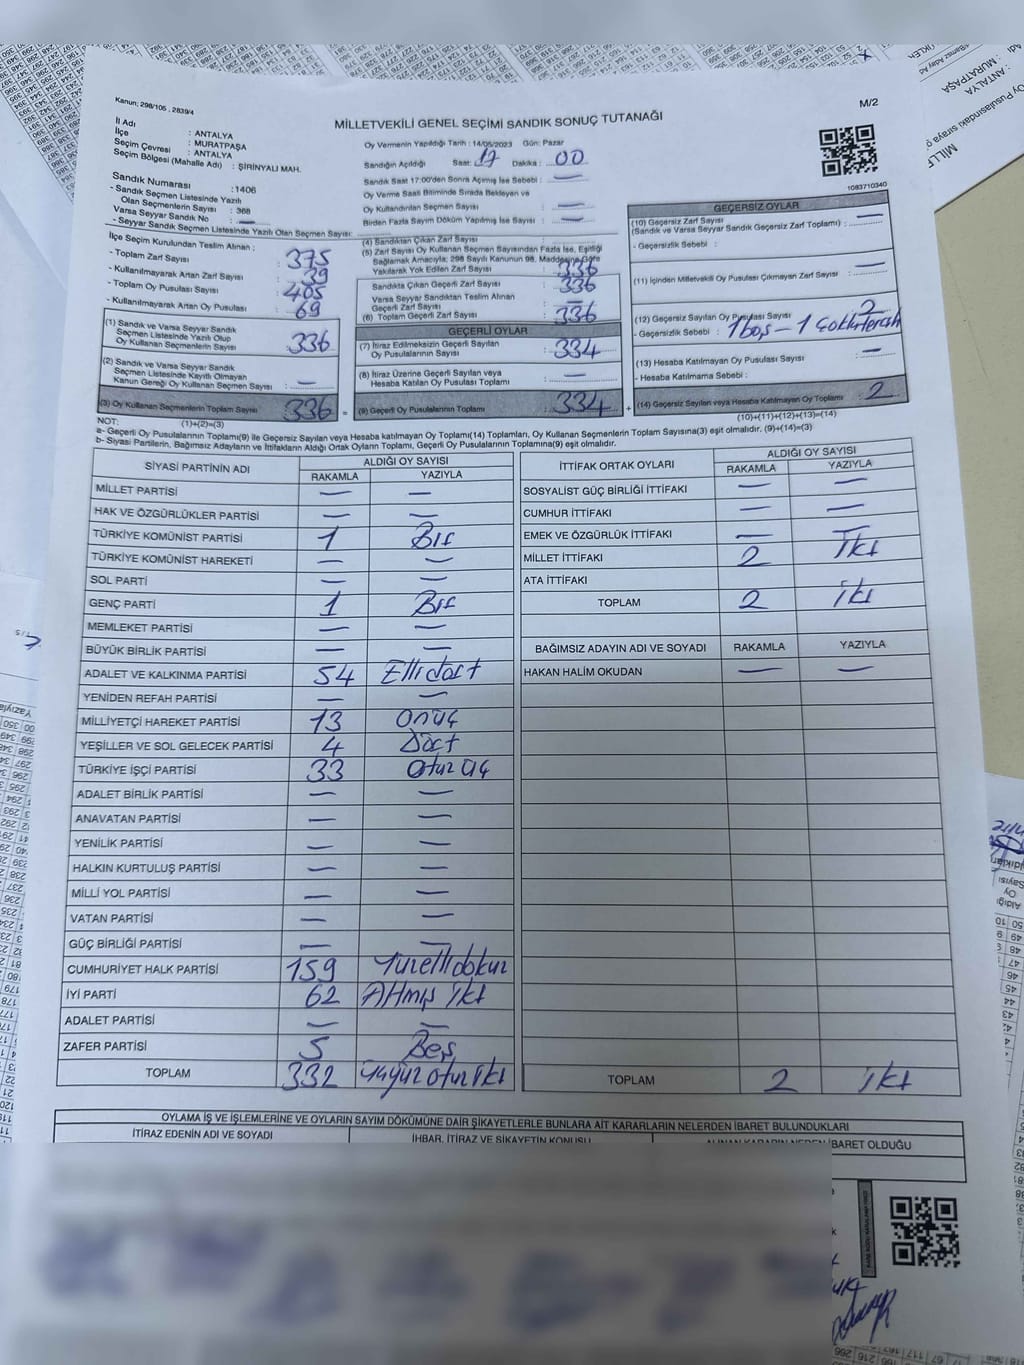 Kanun; 298/105 , 2839/4
M/2
MİLLETVEKİLİ GENEL SEÇİMİ SANDIK SONUÇ TUTANAĞI
İl Adı : ANTALYA
İlçe : MURATPAŞA
Seçim Çevresi : ANTALYA
Seçim Bölgesi (Mahalle Adı) : ŞİRİNYALI MAH.
Sandık Numarası :1406
- Sandık Seçmen Listesinde Yazılı
Olan Seçmenlerin Sayısı : 368
Varsa Seyyar Sandık No : —
- Seyyar Sandık Seçmen Listesinde Yazılı Olan Seçmen Sayısı:
Oy Vermenin Yapıldığı Tarih : 14/05/2023 Gün: Pazar
Sandığın Açıldığı Saat: 17 Dakika : 00
Sandık Saat 17:00'den Sonra Açılmış İse Sebebi : —
Oy Verme Saati Bitiminde Sırada Bekleyen ve
Oy Kullandırılan Seçmen Sayısı : —
Birden Fazla Sayım Döküm Yapılmış İse Sayısı : —
1083710340
İlçe Seçim Kurulundan Teslim Alınan ;
- Toplam Zarf Sayısı : 375
- Kullanılmayarak Artan Zarf Sayısı : 39
- Toplam Oy Pusulası Sayısı : 405
- Kullanılmayarak Artan Oy Pusulası : 69
(1) Sandık ve Varsa Seyyar Sandık
Seçmen Listesinde Yazılı Olup
Oy Kullanan Seçmenlerin Sayısı : 336
(2) Sandık ve Varsa Seyyar Sandık
Seçmen Listesinde Kayıtlı Olmayan
Kanun Gereği Oy Kullanan Seçmen Sayısı : —
(3) Oy Kullanan Seçmenlerin Toplam Sayısı : 336
(1)+(2)=(3)
(4) Sandıktan Çıkan Zarf Sayısı
(5) Zarf Sayısı Oy Kullanan Seçmen Sayısından Fazla İse, Eşitliği
Sağlamak Amacıyla; 298 Sayılı Kanunun 98. Maddesine Göre
Yakılarak Yok Edilen Zarf Sayısı : 336
Sandıkta Çıkan Geçerli Zarf Sayısı : 336
Varsa Seyyar Sandıktan Teslim Alınan
Geçerli Zarf Sayısı : —
(6) Toplam Geçerli Zarf Sayısı : 336
GEÇERLİ OYLAR
(7) İtiraz Edilmeksizin Geçerli Sayılan
Oy Pusulalarının Sayısı : 334
(8) İtiraz Üzerine Geçerli Sayılan veya
Hesaba Katılan Oy Pusulası Toplamı : —
= (9) Geçerli Oy Pusulalarının Toplamı : 334
GEÇERSİZ OYLAR
(10) Geçersiz Zarf Sayısı
(Sandık ve Varsa Seyyar Sandık Geçersiz Zarf Toplamı) : —
- Geçersizlik Sebebi :
(11) İçinden Milletvekili Oy Pusulası Çıkmayan Zarf Sayısı : —
(12) Geçersiz Sayılan Oy Pusulası Sayısı : 2
- Geçersizlik Sebebi : 1 boş - 1 çoklu tercih
(13) Hesaba Katılmayan Oy Pusulası Sayısı : —
- Hesaba Katılmama Sebebi :
+ (14) Geçersiz Sayılan veya Hesaba Katılmayan Oy Toplamı : 2
(10)+(11)+(12)+(13)=(14)
NOT:
a- Geçerli Oy Pusulalarının Toplamı(9) ile Geçersiz Sayılan veya Hesaba katılmayan Oy Toplamı(14) Toplamları, Oy Kullanan Seçmenlerin Toplam Sayısına(3) eşit olmalıdır. (9)+(14)=(3)
b- Siyasi Partilerin, Bağımsız Adayların ve İttifakların Aldığı Ortak Oyların Toplamı, Geçerli Oy Pusulalarının Toplamına(9) eşit olmalıdır.
SİYASİ PARTİNİN ADI ALDIĞI OY SAYISI
RAKAMLA YAZIYLA
MİLLET PARTİSİ — —
HAK VE ÖZGÜRLÜKLER PARTİSİ — —
TÜRKİYE KOMÜNİST PARTİSİ 1 Bir
TÜRKİYE KOMÜNİST HAREKETİ — —
SOL PARTİ — —
GENÇ PARTİ 1 Bir
MEMLEKET PARTİSİ — —
BÜYÜK BİRLİK PARTİSİ — —
ADALET VE KALKINMA PARTİSİ 54 Elli dört
YENİDEN REFAH PARTİSİ — —
MİLLİYETÇİ HAREKET PARTİSİ 13 Onüç
YEŞİLLER VE SOL GELECEK PARTİSİ 4 Dört
TÜRKİYE İŞÇİ PARTİSİ 33 Otuz üç
ADALET BİRLİK PARTİSİ — —
ANAVATAN PARTİSİ — —
YENİLİK PARTİSİ — —
HALKIN KURTULUŞ PARTİSİ — —
MİLLİ YOL PARTİSİ — —
VATAN PARTİSİ — —
GÜÇ BİRLİĞİ PARTİSİ — —
CUMHURİYET HALK PARTİSİ 159 Yüzelli dokuz
İYİ PARTİ 62 Altmış iki
ADALET PARTİSİ — —
ZAFER PARTİSİ 5 Beş
TOPLAM 332 Üçyüz otuz iki
İTTİFAK ORTAK OYLARI ALDIĞI OY SAYISI
RAKAMLA YAZIYLA
SOSYALİST GÜÇ BİRLİĞİ İTTİFAKI — —
CUMHUR İTTİFAKI — —
EMEK VE ÖZGÜRLÜK İTTİFAKI — —
MİLLET İTTİFAKI 2 İki
ATA İTTİFAKI
TOPLAM 2 iki
BAĞIMSIZ ADAYIN ADI VE SOYADI RAKAMLA YAZIYLA
HAKAN HALİM OKUDAN — —
TOPLAM 2 iki
OYLAMA İŞ VE İŞLEMLERİNE VE OYLARIN SAYIM DÖKÜMÜNE DAİR ŞİKAYETLERLE BUNLARA AİT KARARLARIN NELERDEN İBARET BULUNDUKLARI
İTİRAZ EDENİN ADI VE SOYADI İHBAR, İTİRAZ VE ŞİKAYETİN KONUSU ALINAN KARARIN NEDEN İBARET OLDUĞU